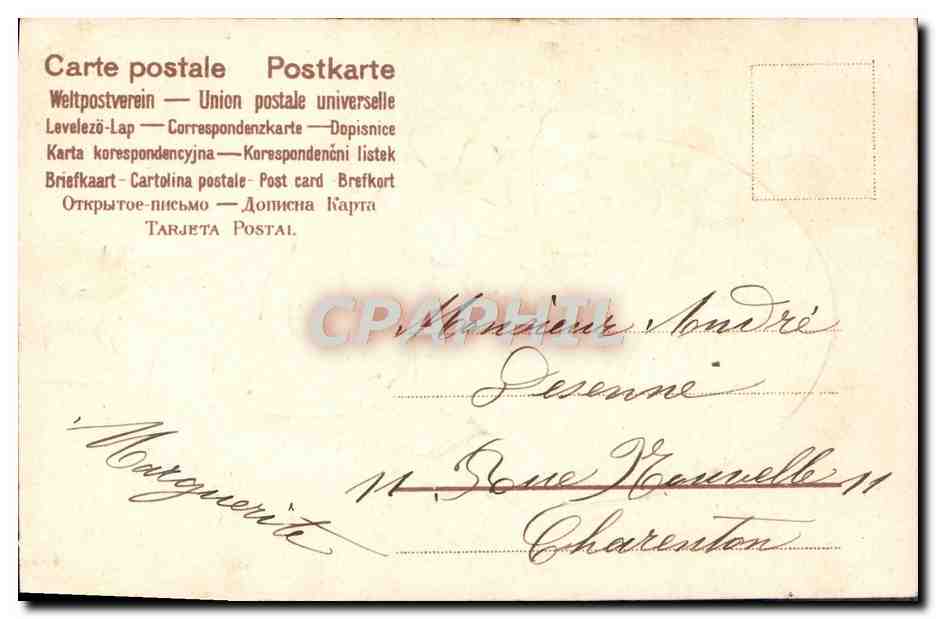 Carte postale Postkarte
Weltpostverein — Union postale universelle
Levelező-Lap — Correspondenzkarte — Dopisnice
Karta korespondencyjna — Korespondenční listek
Briefkaart - Cartolina postale - Post card - Brefkort
Открытое-письмо — Дописна Карта
TARJETA POSTAL
CPAPHIL
Monsieur André
Desenne
11 Rue Nouvelle 11
Charenton
Marguerite